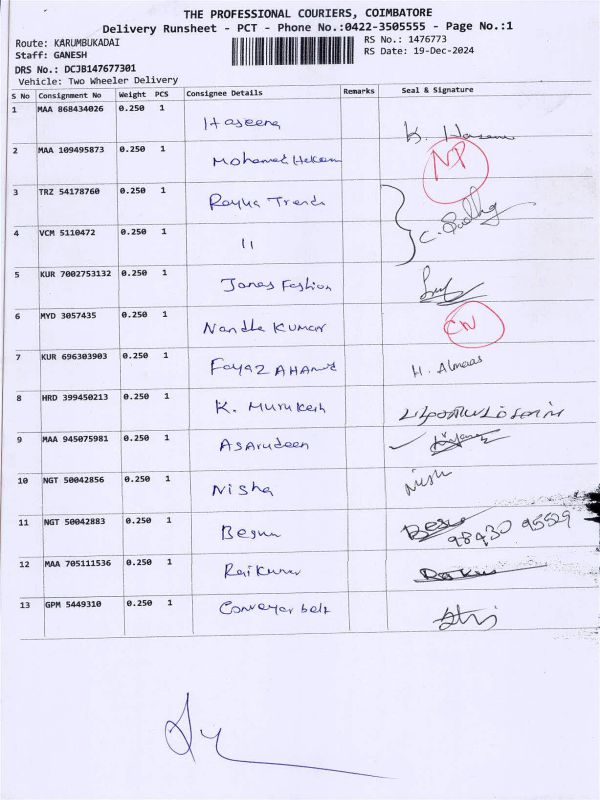 THE PROFESSIONAL COURIERS, COIMBATORE
Delivery Runsheet - PCT - Phone No.:0422-3505555 - Page No.:1
Route: KARUMBUKADAI
RS No.: 1476773
Staff: GANESH
RS Date: 19-Dec-2024
DRS No.: DCJB147677301
Vehicle: Two Wheeler Delivery
S No Consignment No Weight PCS Consignee Details Remarks Seal & Signature
1 MAA 868434026 0.250 1 Haseena K. Haseena
2 MAA 109495873 0.250 1 Mohamed Hekam NP
3 TRZ 54178760 0.250 1 Rayya Trends
4 VCM 5110472 0.250 1 11
5 KUR 7002753132 0.250 1 Janas Fashion
6 MYD 3057435 0.250 1 Nandha Kumar CN
7 KUR 696303903 0.250 1 Fayaz AHAmed H. Almaas
8 HRD 399450213 0.250 1 K. Murukesh
9 MAA 945075981 0.250 1 Asarudeen
10 NGT 50042856 0.250 1 Nisha Nish
11 NGT 50042883 0.250 1 Begum 98430 95529
12 MAA 705111536 0.250 1 Raikumar
13 GPM 5449310 0.250 1 Conveyar belt